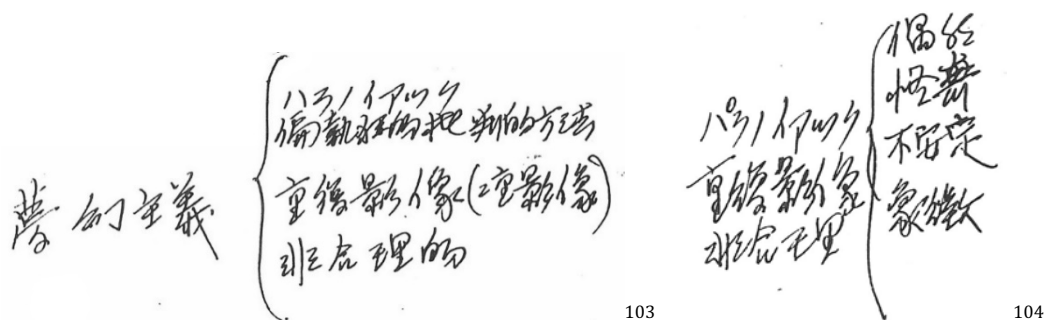 夢幻主義
パラノイアック
偏執狂的批判的方法
重複影像(二重影像)
非合理的
103
パラノイアック
重複影像
非合理
偶然
怪異
不安定
象徴
104